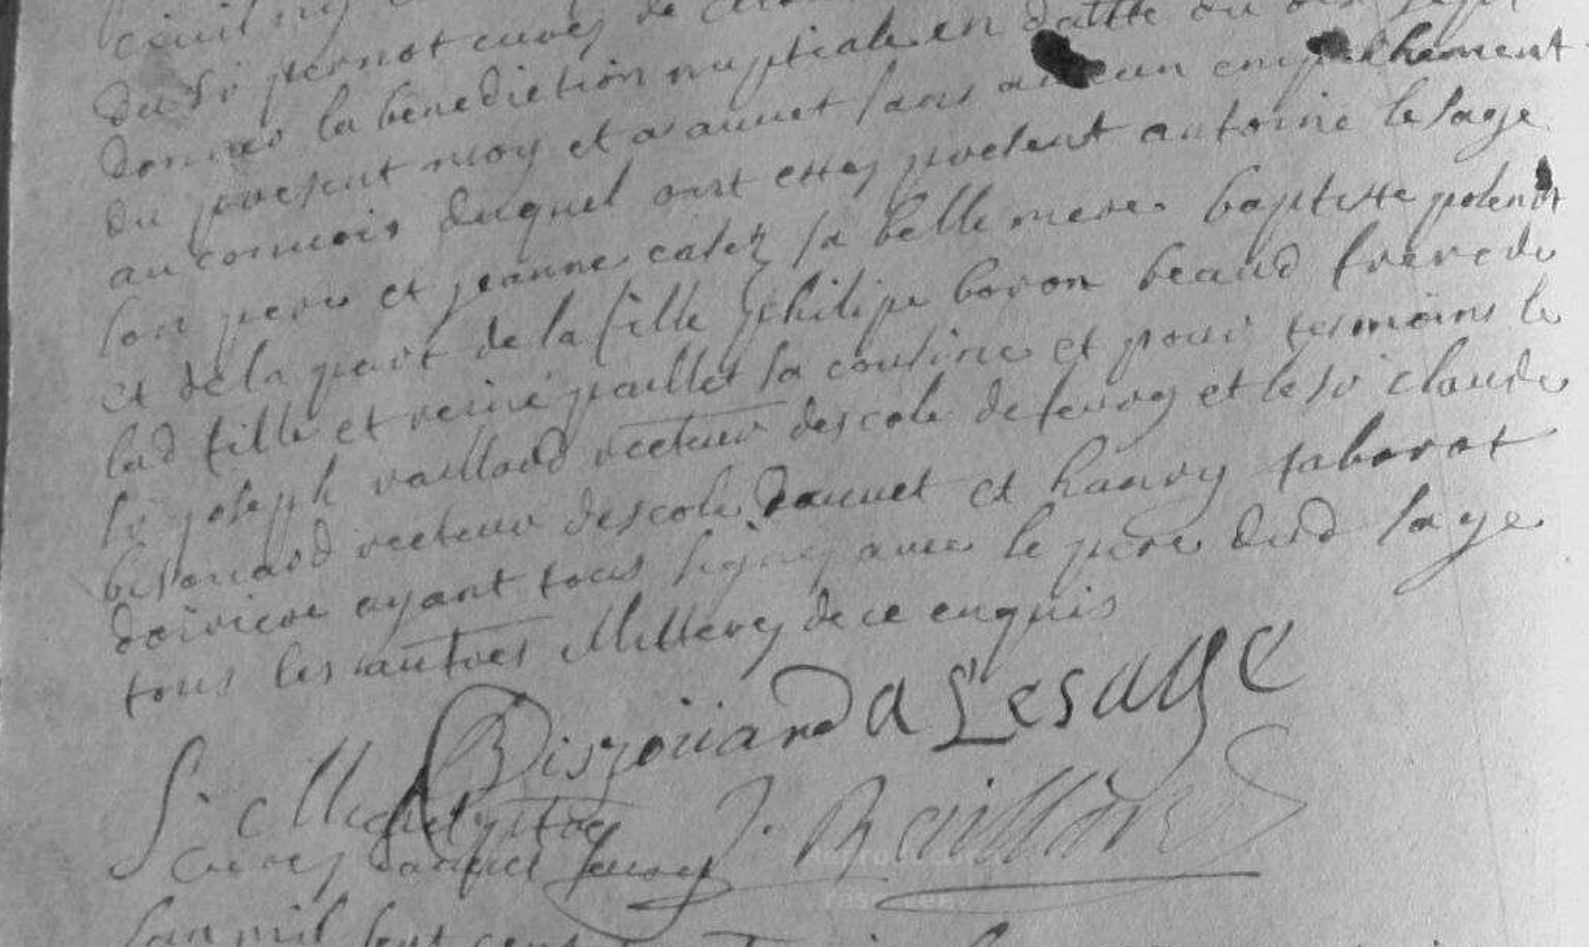 civil ny
du Sr pernot curez de
donner la benediction nuptiale en datte du dix sept
du present moy et a aunet sans aucun empeschement
au connoir duquel ont estez present antoine lesage
son pere et jeanne catez sa belle mere baptiste potenot
et de la part de la fille philipe boron beaud frere de
lad fille et reine paillet sa cousine et pour tesmoins le
Sr joseph raillard recteur descole de leurey et le Sr claude
besouard recteur descole daunet et haury taborot
doiviere ayant tous signez avec le pere dud sage
tous les autres illitterez de ce enquis
Biszouiard A LesaGe
S. Michel
curez daunet leurey J. Raillard
Lan mil sept cent